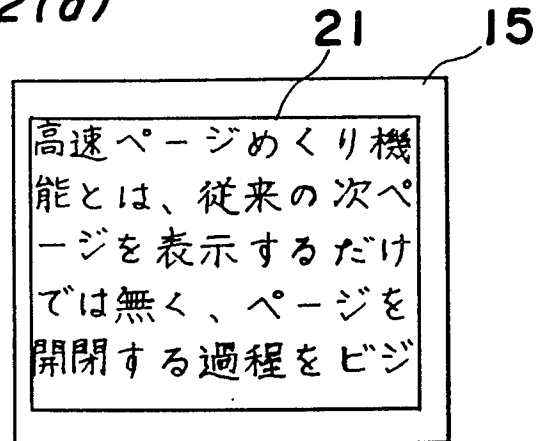 2(a)
21 15
高速ページめくり機
能とは、従来の次ペ
ージを表示するだけ
では無く、ページを
開閉する過程をビジ